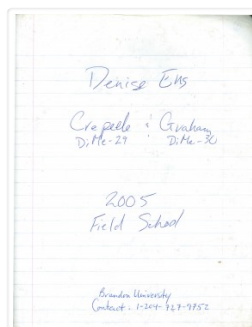 Denise Ens
Crepeele & Graham
DiMe-29 DiMe-30
2005
Field School
Brandon University
Contact: 1-204-727-9752